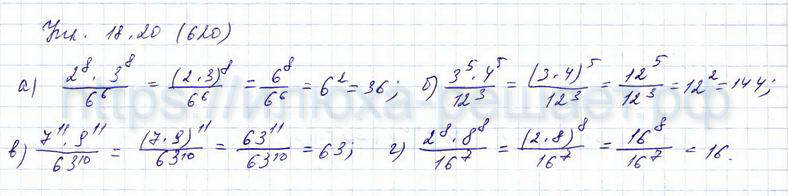 Упр. 18.20 (620)
а) 2⁸·3⁸/6⁶ = (2·3)⁸/6⁶ = 6⁸/6⁶ = 6² = 36; б) 3⁵·4⁵/12³ = (3·4)⁵/12³ = 12⁵/12³ = 12² = 144;
в) 7¹¹·9¹¹/63¹⁰ = (7·9)¹¹/63¹⁰ = 63¹¹/63¹⁰ = 63; г) 2⁸·8⁸/16⁷ = (2·8)⁸/16⁷ = 16⁸/16⁷ = 16.